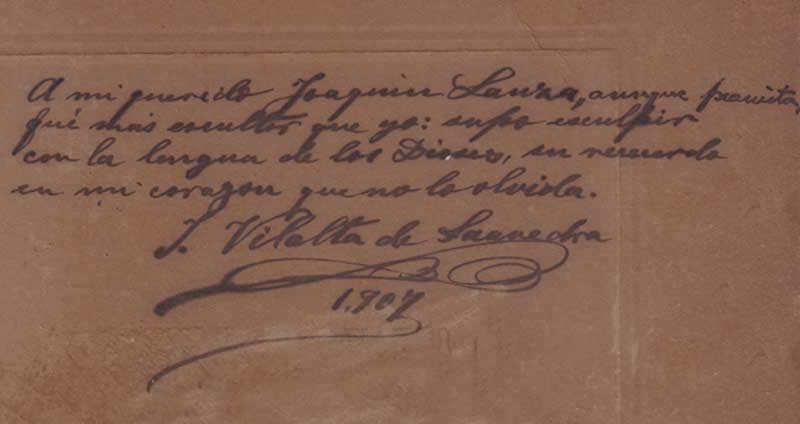 A mi querido Joaquin Lanza, aunque pianista,
fué más escultor que yo: supo esculpir
con la lengua de los Dioses, su recuerdo
en mi corazon que no lo olvida.
J. Vilalta de Saavedra
1.907